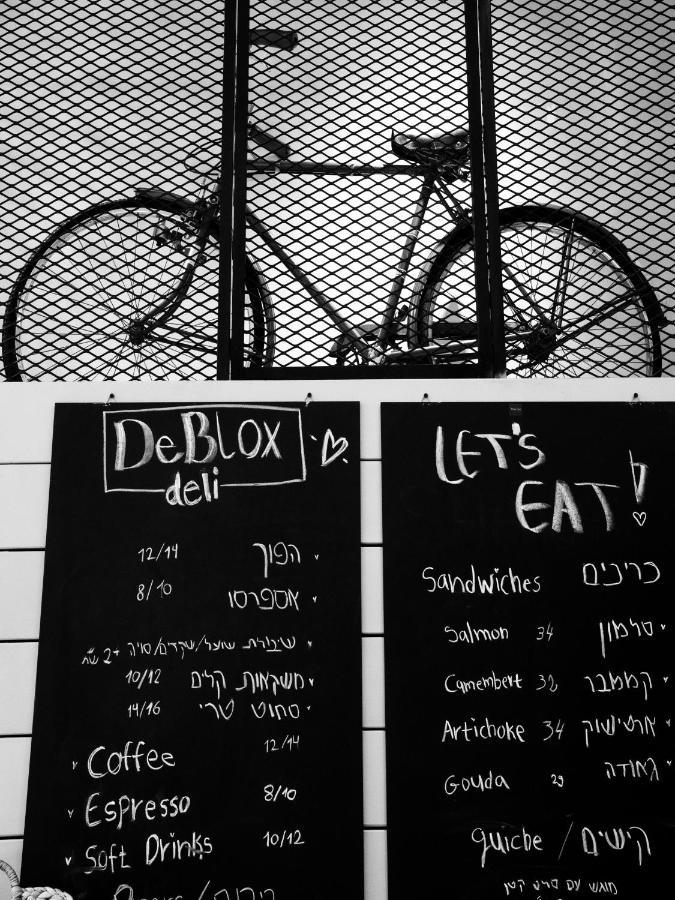 DeBLOX
deli
12/14 הפוך
8/10 אספרסו
שיבולת שועל/שקדים/סויה +2 שח
10/12 משקאות קלים
14/16 סחוט טרי
Coffee 12/14
Espresso 8/10
Soft Drinks 10/12
LET'S
EAT!
Sandwiches כריכים
Salmon 34 סלמון
Camembert 32 קממבר
Artichoke 34 ארטישוק
Gouda 29 גאודה
quiche / קישים
מוגש עם סלט קטן